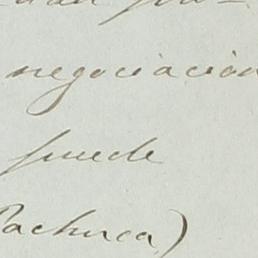 negociación
puede
Pachuca)